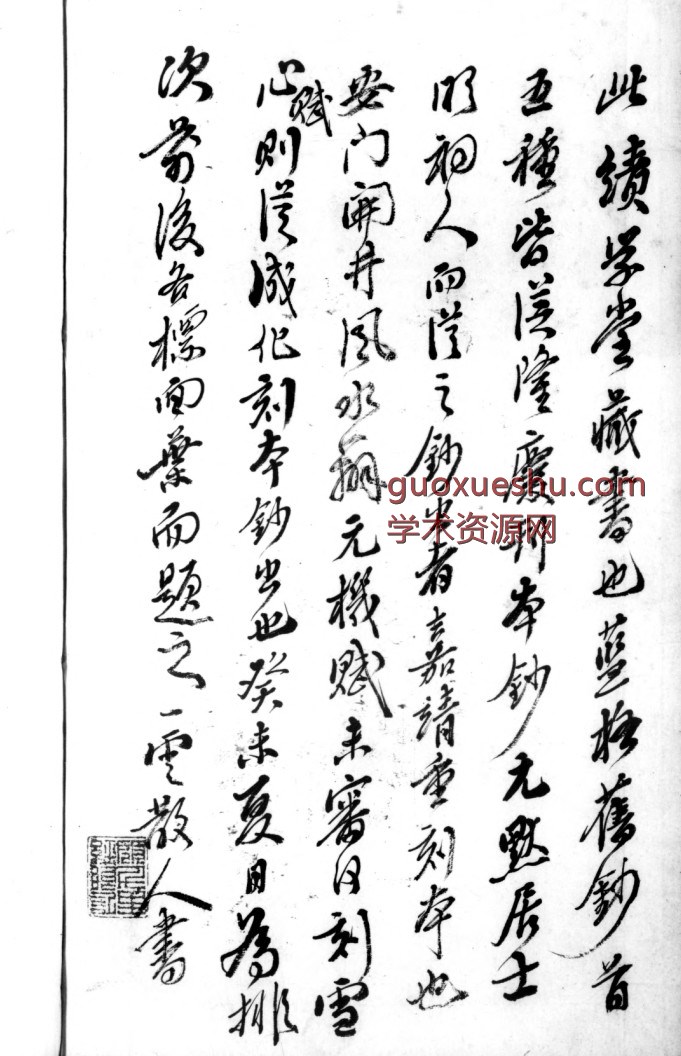 此績学堂藏書也藍格舊鈔首
五種皆從隆慶刊本鈔元默居士
明初人而從之鈔出者嘉靖重刻本也
要门開井風水元機賦未審何刻雪
心賦则從成化刻本鈔出也癸未夏日為排
次前後各標面葉而題之一雲散人書
guoxueshu.com
学术资源网